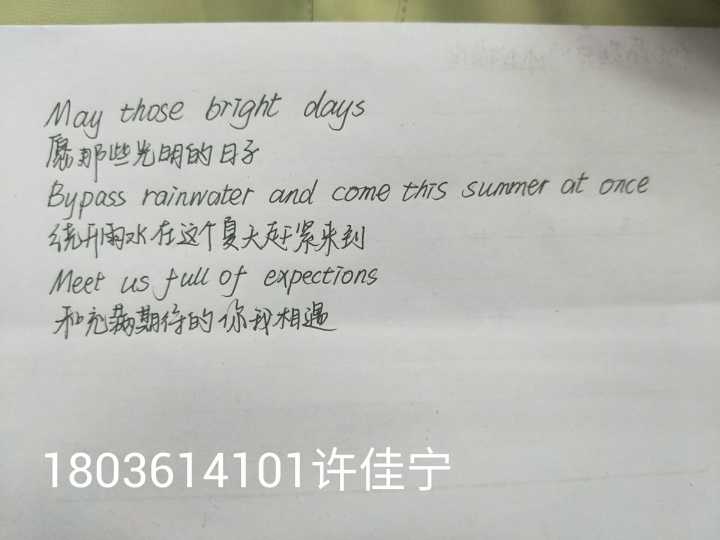 May those bright days
愿那些光明的日子
Bypass rainwater and come this summer at once
绕开雨水在这个夏天赶紧来到
Meet us full of expections
和充满期待的你我相遇
1803614101许佳宁